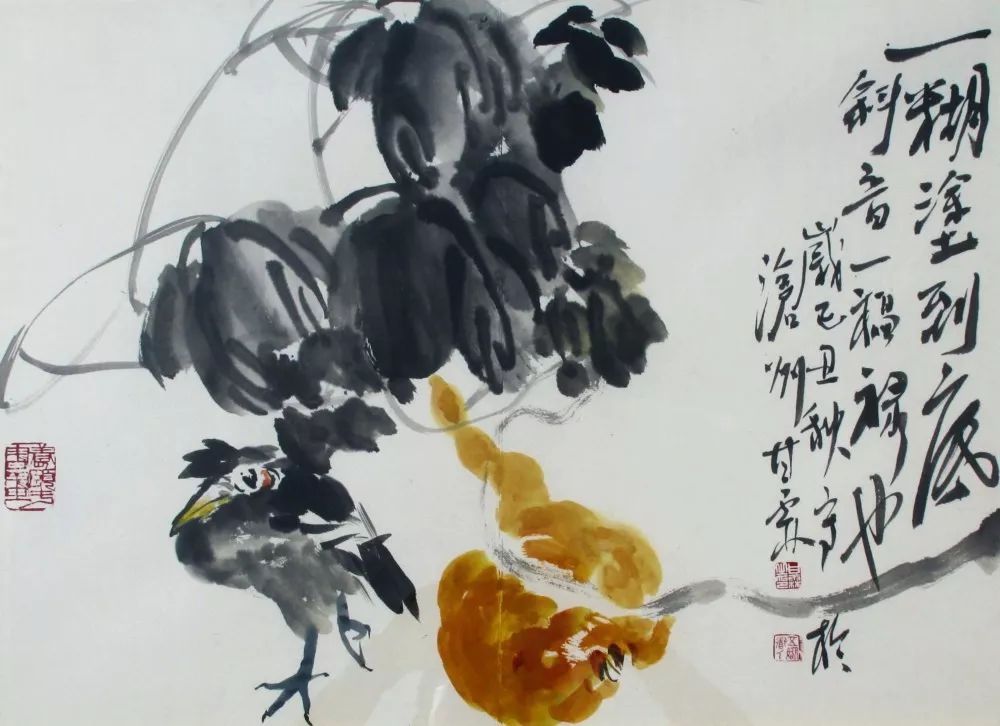 一糊塗到底
斜音一福禄也
歲己丑秋寫於
滄州甘霖